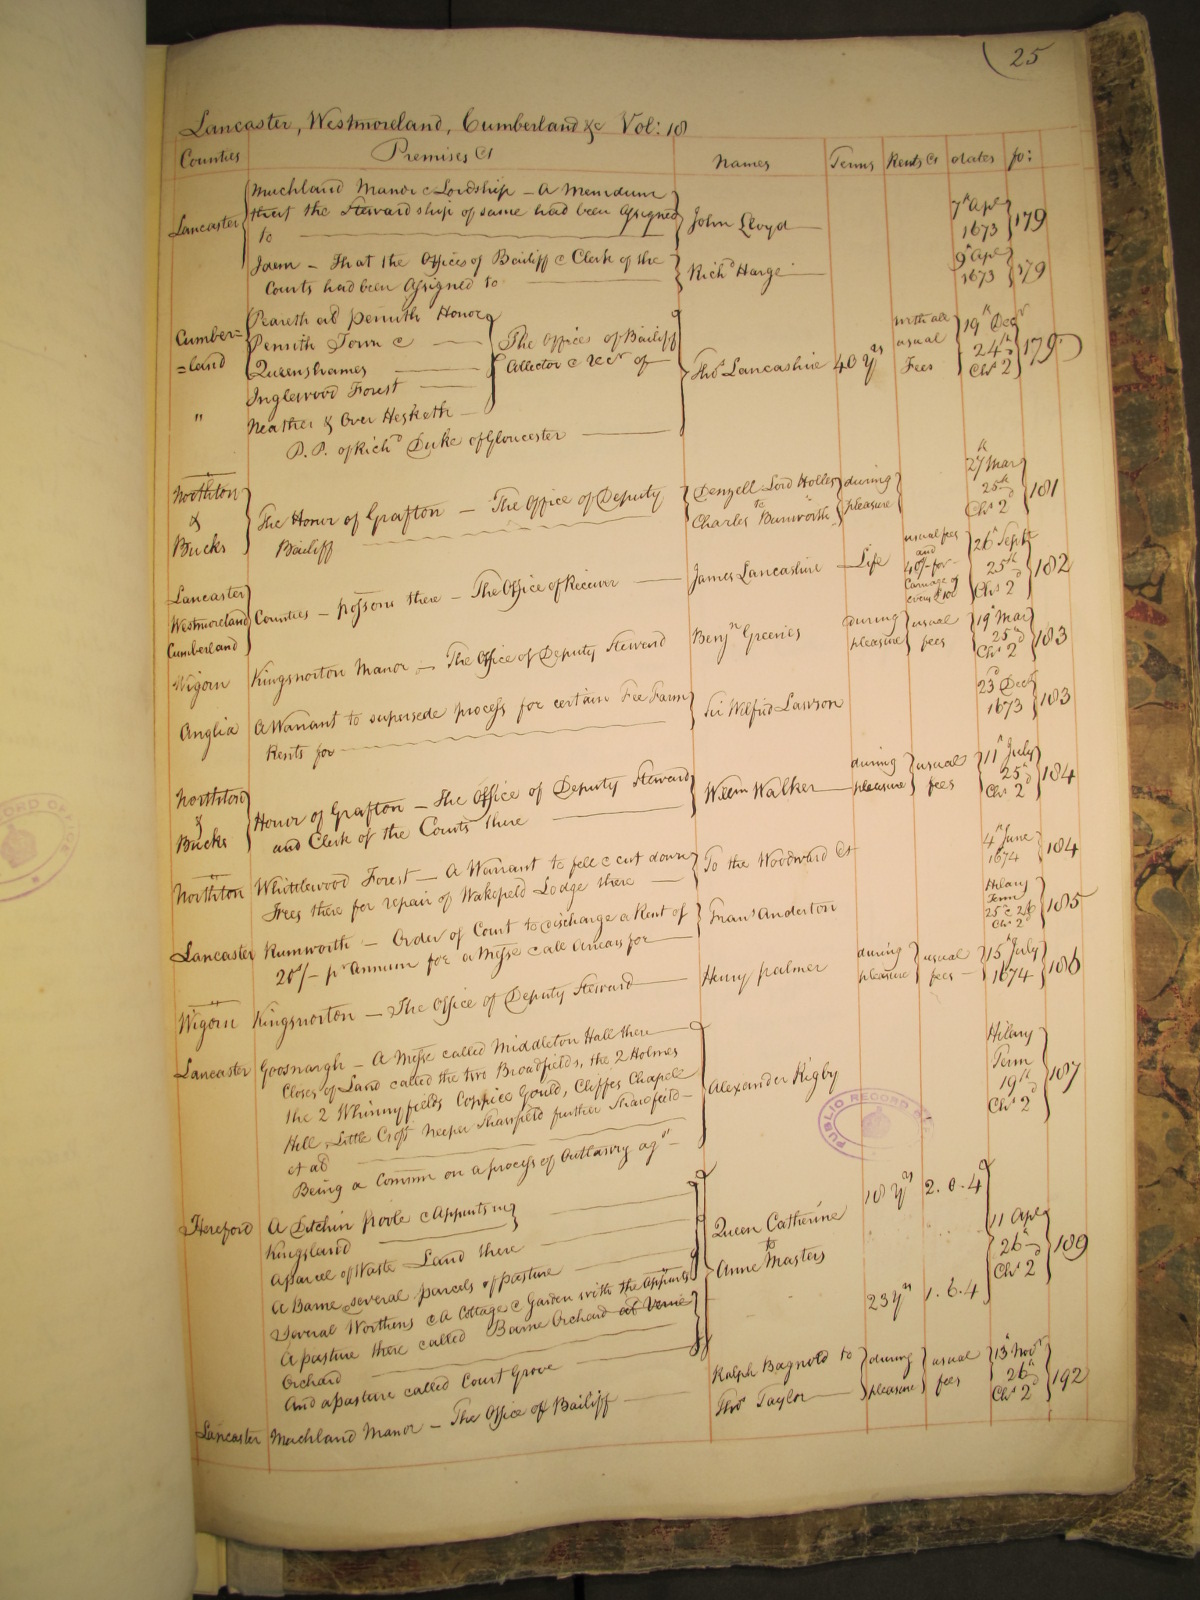 25
Lancaster, Westmoreland, Cumberland &c Vol: 18
Counties Premises &c Names Terms Rents &c dates fo:
Lancaster Muchland Manor & Lordship – A Memdum
that the Stewardship of same had been assigned
to John Lloyd 7th Apl 1673 179
Idem – That the Offices of Bailiff & Clerk of the
Courts had been assigned to Richd Harge 9th Apl 1673 179
Cumber=
=land
"
Penrith Honor
Penrith Town &
Queenshames
Inglewood Forest
Neather & Over Hesketh
The Offices of Bailiff
Collector & recr of
Thos Lancashire 40 yrs with all usual Fees 19th Decr 24th Chs 2d 179
P.P. of Richd Duke of Gloucester
Northton
&
Bucks
The Honor of Grafton – The Office of Deputy
Bailiff
Denzell Lord Holles
to
Charles Bunworth
during pleasure 27th Mar 25th Chs 2d 181
Lancaster
Westmoreland
Cumberland
Counties – possons there – The Office of Receiver James Lancashire Life
usual fees
and
40/- for
Carriage of
every £100
26th Sept 25th Chs 2d 182
Wigorn Kingsnorton Manor – The Office of Deputy Steward Benjn Greeves during pleasure usual fees 19th Mar 25th Chs 2d 183
Anglia A Warrant to supersede process for certain Fee Farm
Rents for Sir Wilfrid Lawson 23d Decr 1673 183
Northton
&
Bucks
Honor of Grafton – The Office of Deputy Steward
and Clerk of the Courts there Willm Walker during pleasure usual fees 11th July 25th Chs 2d 184
Northton Whittlewood Forest – A Warrant to fell & cut down
Trees there for repair of Wakefield Lodge there To the Woodward &c 4th June 1674 184
Lancaster Rumworth – Order of Court to discharge a Rent of
20s/- pr Annum for a Messe & all Arrears for Frans Anderton
Hilary
Term
25 & 26
Chs 2d
185
Wigorn Kingsnorton – The Office of Deputy Steward Henry Palmer during pleasure usual fees 15th July 1674 186
Lancaster Goosnargh – A Messe called Middleton Hall there
Closes of Land called the two Broadfields, the 2 Holmes
the 2 Whinnyfields Coppice Gould, Cliffes Chapele
Hill Little Croft neeper Sharpfield further Sharpfield
et al
Being a Common on a process of Outlawry agst
Alexander Rigby
Hilary
Term
19th
Chs 2d
187
Hereford A Ditchin Poole & Appurts in
Kingsland
A parcel of Waste Land there
A Barne several parcels of pasture
Several Worthens & A Cottage & Garden with the Appurts
A pasture there called Barne Orchard
Orchard
And a pasture called Court Grove
Queen Catherine
to
Anne Masters
18 yrs 2.0.4
23 yrs 1.6.4
11 Apl
26th
Chs 2
189
Lancaster Muchland Manor – The Office of Bailiff
Ralph Bagnold to
Thos Taylor
during pleasure usual fees 13th Novr 26th Chs 2d 192
PUBLIC RECORD
RECORD OF